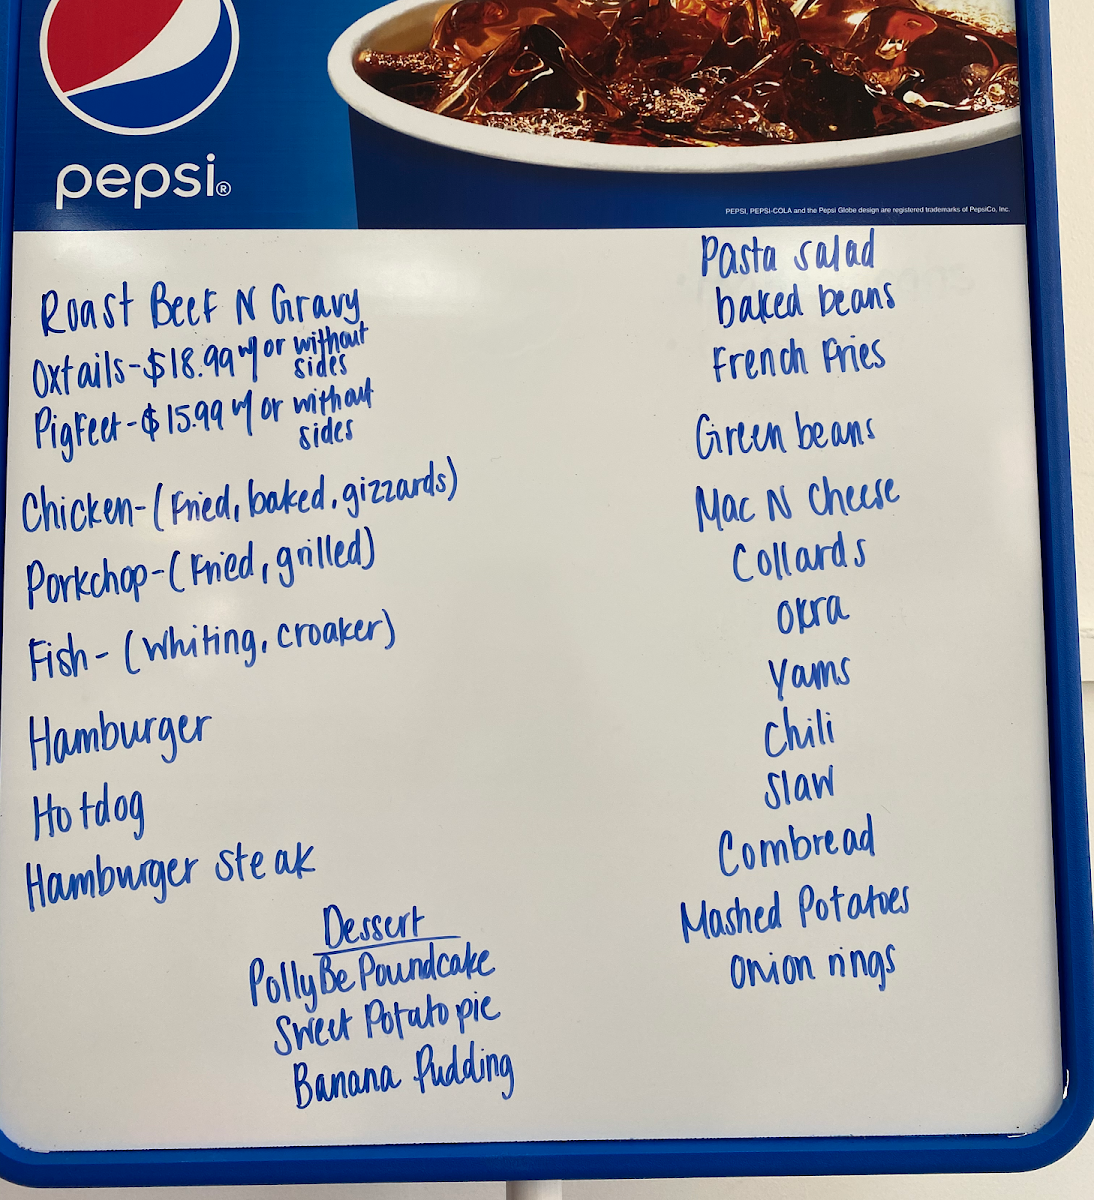 pepsi®
PEPSI, PEPSI-COLA and the Pepsi Globe design are registered trademarks of PepsiCo, Inc.
Roast Beef N Gravy
Oxtails-$18.99 w/ or without
sides
PigFeet-$15.99 w/ or without
sides
Chicken-(Fried, baked, gizzards)
Porkchop-(Fried, grilled)
Fish-(Whiting, croaker)
Hamburger
Hotdog
Hamburger steak
Dessert
PollyBe Poundcake
Sweet Potato pie
Banana Pudding
Pasta salad
baked beans
French Fries
Green beans
Mac N Cheese
Collards
Okra
Yams
Chili
Slaw
Cornbread
Mashed Potatoes
Onion rings